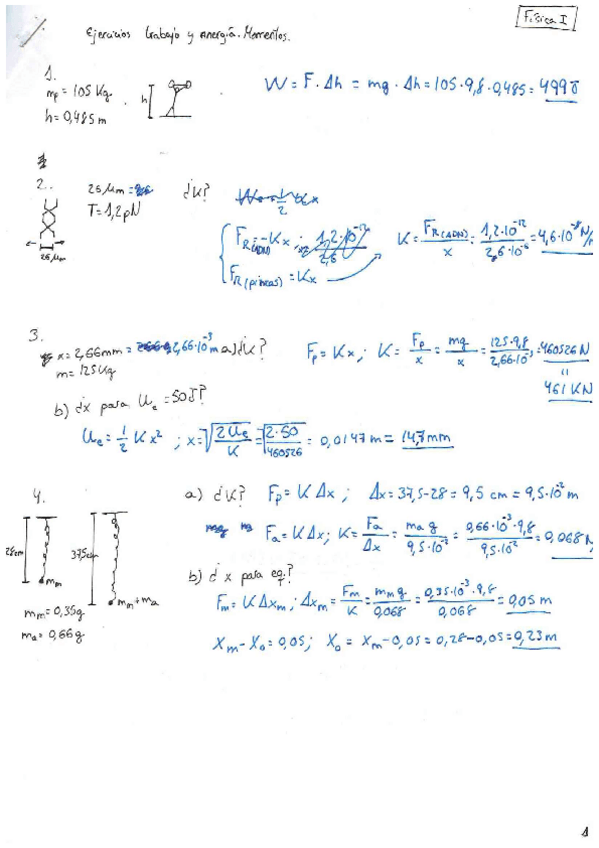 Física I
Ejercicios trabajo y energía. Momentos.
1.
mp = 105 Kg
h = 0,485 m
h
W = F · Δh = mg · Δh = 105 · 9,8 · 0,485 = 499 J
2.
26 μm =
T = 1,2 pN
¿K?
26 μm
F_R(ADN) = Kx
K = F_R(ADN) / x = 1,2·10^-12 / 2,6·10^-6 = 4,6·10^-8 N/m
F_R(pinzas) = Kx
3.
x = 2,66 mm = 2,66·10^-3 m
m = 125 Kg
a) ¿K?
Fp = Kx ; K = Fp / x = mg / x = 125·9,8 / 2,66·10^-3 = 460526 N
=
461 KN
b) ¿x para Ue = 50 J?
Ue = 1/2 K x² ; x = √(2Ue / K) = √(2·50 / 460526) = 0,0147 m = 14,7 mm
4.
28 cm
37,5 cm
mm
mm + ma
mm = 0,35 g
ma = 0,66 g
a) ¿K? Fp = K Δx ; Δx = 37,5 - 28 = 9,5 cm = 9,5·10^-2 m
Fa = K Δx ; K = Fa / Δx = ma g / 9,5·10^-2 = 0,66·10^-3·9,8 / 9,5·10^-2 = 0,068 N
b) ¿x para eq?
Fm = K Δxm ; Δxm = Fm / K = mm g / 0,068 = 0,35·10^-3·9,8 / 0,068 = 0,05 m
Xm - Xo = 0,05 ; Xo = Xm - 0,05 = 0,28 - 0,05 = 0,23 m
1